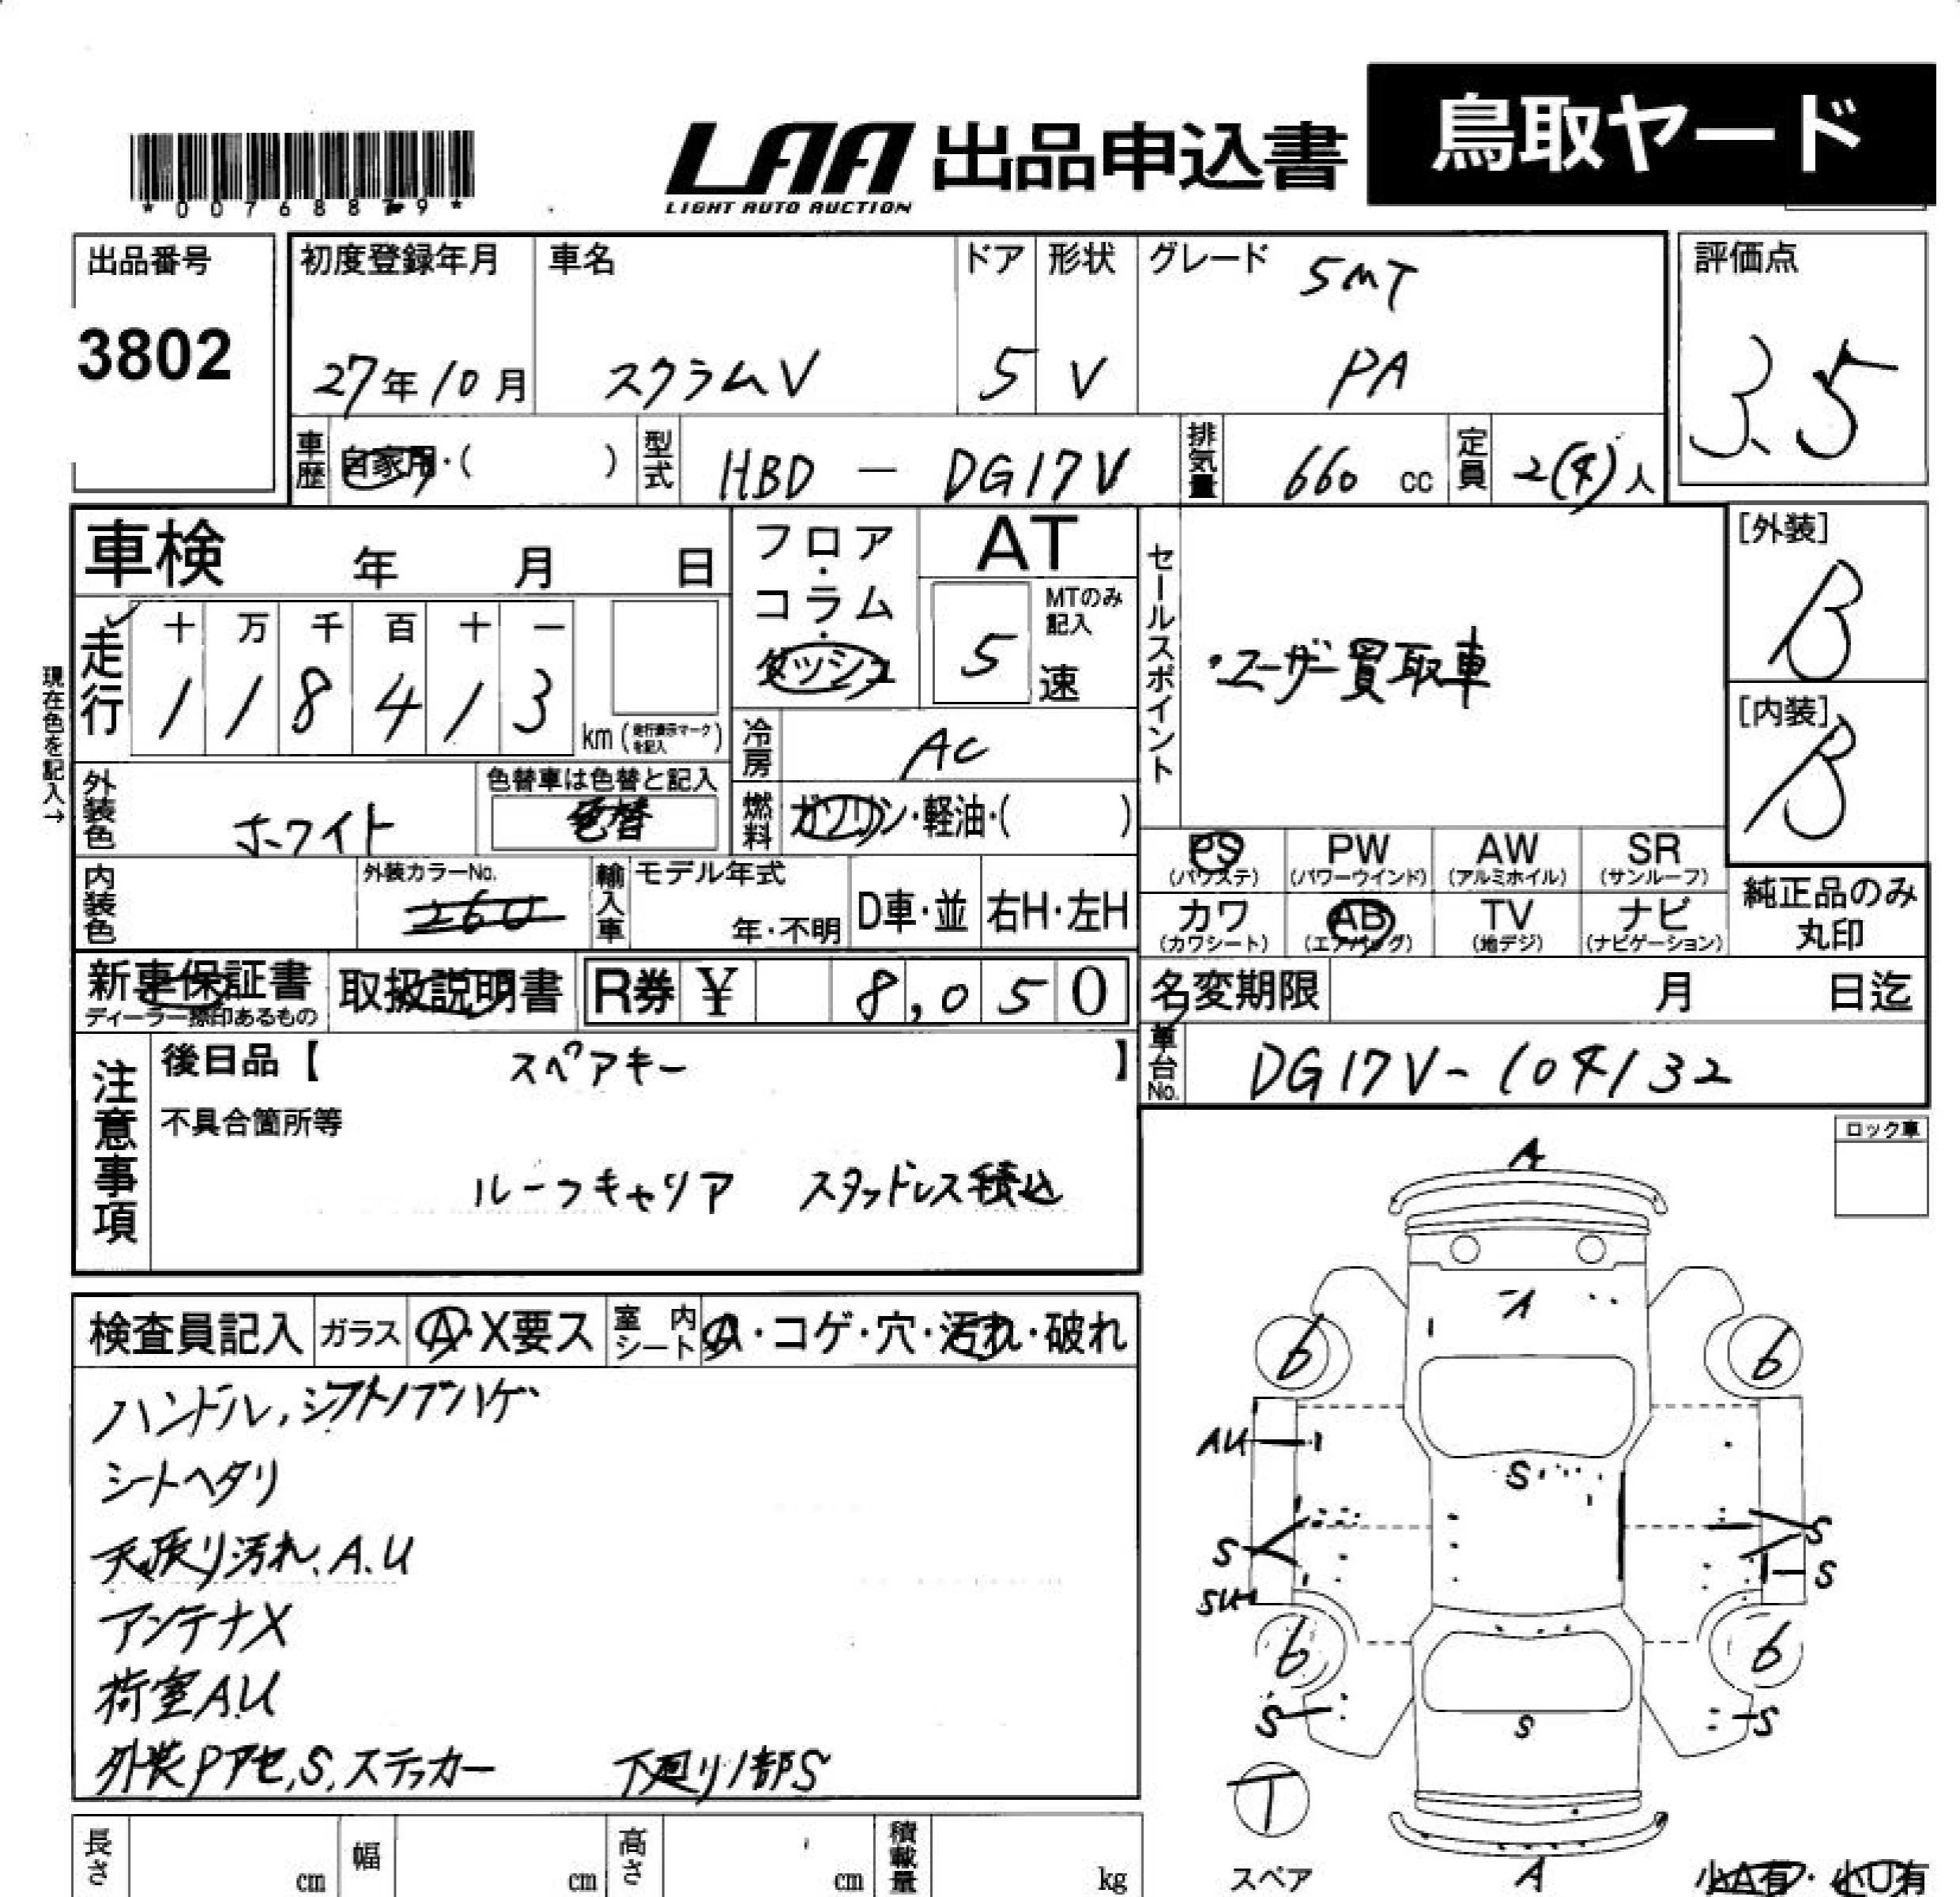 LAA 出品申込書 鳥取ヤード
LIGHT AUTO AUCTION
*00768879*
出品番号
3802
初度登録年月
27年10月
車名
スクラムV
ドア
5
形状
V
グレード 5MT
PA
評価点
3.5
車歴 自家用・( )
型式 HBD - DG17V
排気量 660 cc
定員 2(4)人
車検 年 月 日
フロア・コラム・ダッシュ
AT
MTのみ記入
5 速
セールスポイント
・ユーザー買取車
[外装]
B
[内装]
B
現在色を記入→
走行 十 万 千 百 十 一
1 1 8 4 1 3 km (走行表示マークを記入)
冷房 AC
外装色 ホワイト
色替車は色替と記入
色替
燃料 ガソリン・軽油・( )
PS (パワステ)
PW (パワーウインド)
AW (アルミホイル)
SR (サンルーフ)
カワ (カワシート)
AB (エアバッグ)
TV (地デジ)
ナビ (ナビゲーション)
純正品のみ丸印
内装色
外装カラーNo.
26U
輸入車
モデル年式
年・不明
D車・並
右H・左H
新車保証書
ディーラー捺印あるもの
取扱説明書
R券 ¥ 8,050
名変期限 月 日迄
車台No. DG17V-104132
注意事項
後日品【 スペアキー 】
不具合箇所等
ルーフキャリア スタッドレス積込
ロック車
検査員記入
ガラス A・X要ス
室内シート A・コゲ・穴・汚れ・破れ
ハンドル,シフトノブハゲ
シートヘタリ
天張り汚れ、A.U
アンテナX
荷室A.U
外装Pアセ,S,ステッカー 下廻り1部S
A
A
6
6
AU
S
S
S
S
SU
6
6
S
S
S
T
スペア
A
小A有・小U有
長さ cm
幅 cm
高さ cm
積載量 kg